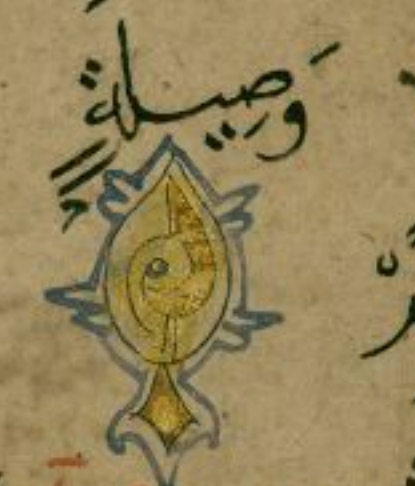 وَصِيلَةٍ